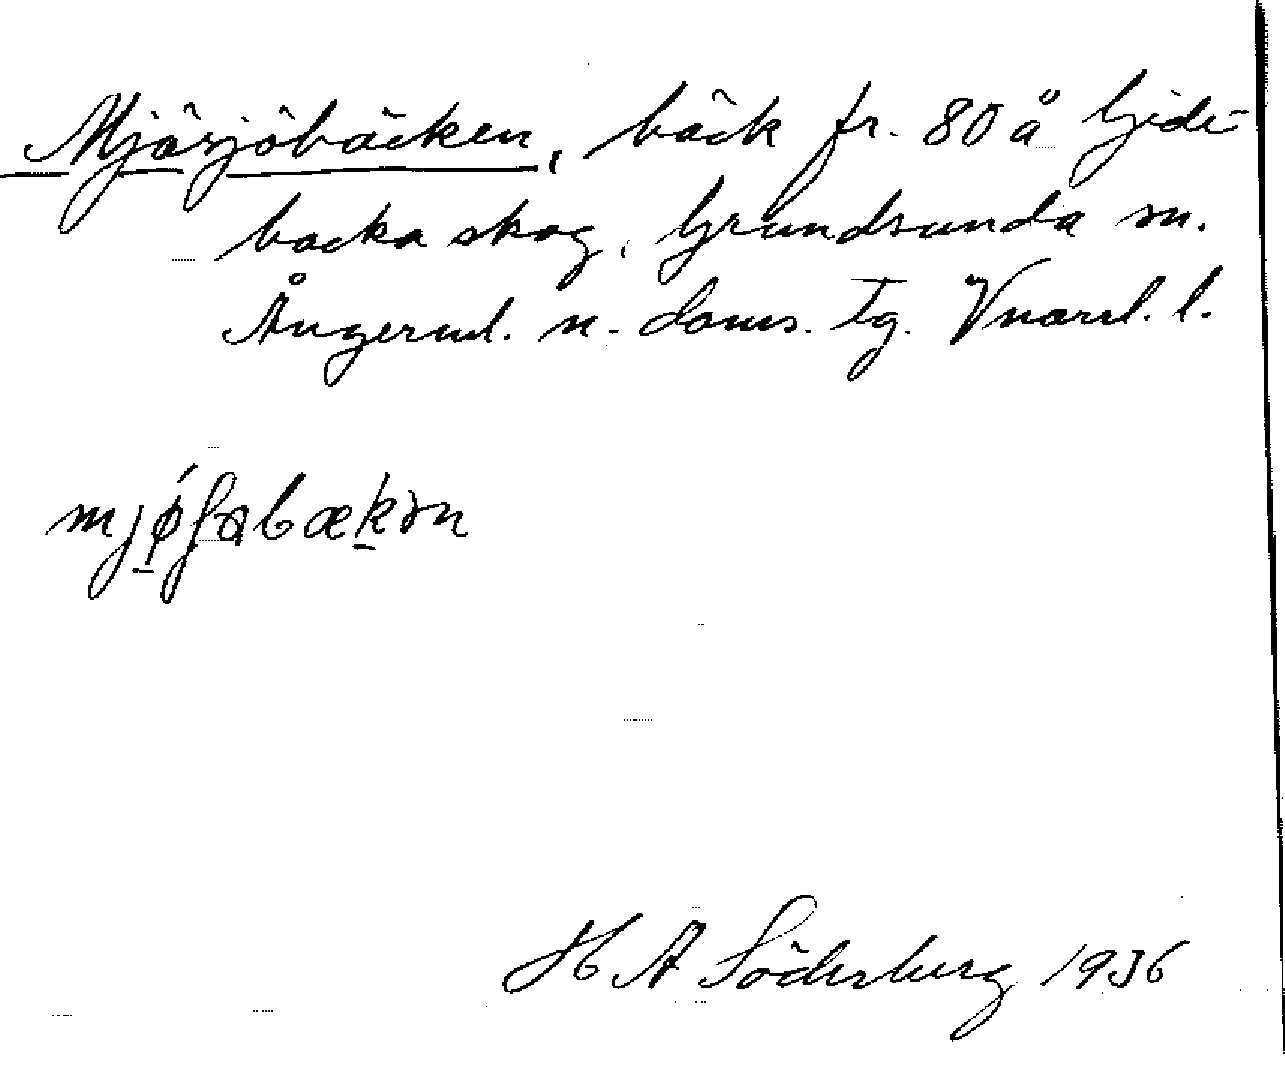 Mjösjöbäcken, bäck fr. 80 å Gide-
backa skog, Grundsunda sn.
Ångerml. n. doms. tg. Vnorrl. l.
mjøʃabækən
H A Söderberg 1936